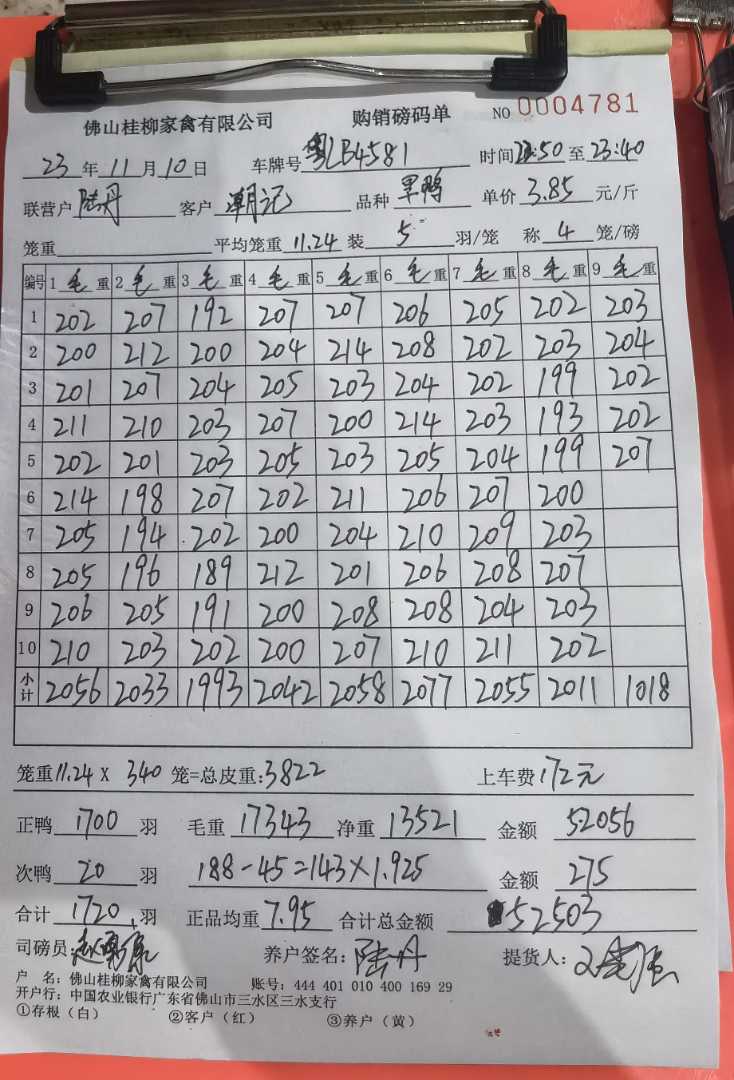 佛山桂柳家禽有限公司 购销磅码单 NO 0004781
23 年 11 月 10 日 车牌号 粤LB4581 时间 22:50 至 23:40
联营户 陆丹 客户 潮记 品种 旱鸭 单价 3.85 元/斤
笼重 平均笼重 11.24 装 5 羽/笼 称 4 笼/磅
编号 1 毛 重 2 毛 重 3 毛 重 4 毛 重 5 毛 重 6 毛 重 7 毛 重 8 毛 重 9 毛 重
1 202 207 192 207 207 206 205 202 203
2 200 212 200 204 214 208 202 203 204
3 201 207 204 205 203 204 202 199 202
4 211 210 203 207 200 214 203 193 202
5 202 201 203 205 203 205 204 199 207
6 214 198 207 202 211 206 207 200
7 205 194 202 200 204 210 209 203
8 205 196 189 212 201 206 208 207
9 206 205 191 200 208 208 204 203
10 210 203 202 200 207 210 211 202
小计 2056 2033 1993 2042 2058 2077 2055 2011 1018
笼重 11.24 X 340 笼=总皮重: 3822 上车费 172元
正鸭 1700 羽 毛重 17343 净重 13521 金额 52056
次鸭 20 羽 188-45=143×1.925 金额 275
合计 1720 羽 正品均重 7.95 合计总金额 52503
司磅员: 养户签名: 陆丹 提货人:
户 名: 佛山桂柳家禽有限公司 账号: 444 401 010 400 169 29
开户行: 中国农业银行广东省佛山市三水区三水支行
①存根（白） ②客户（红） ③养户（黄）